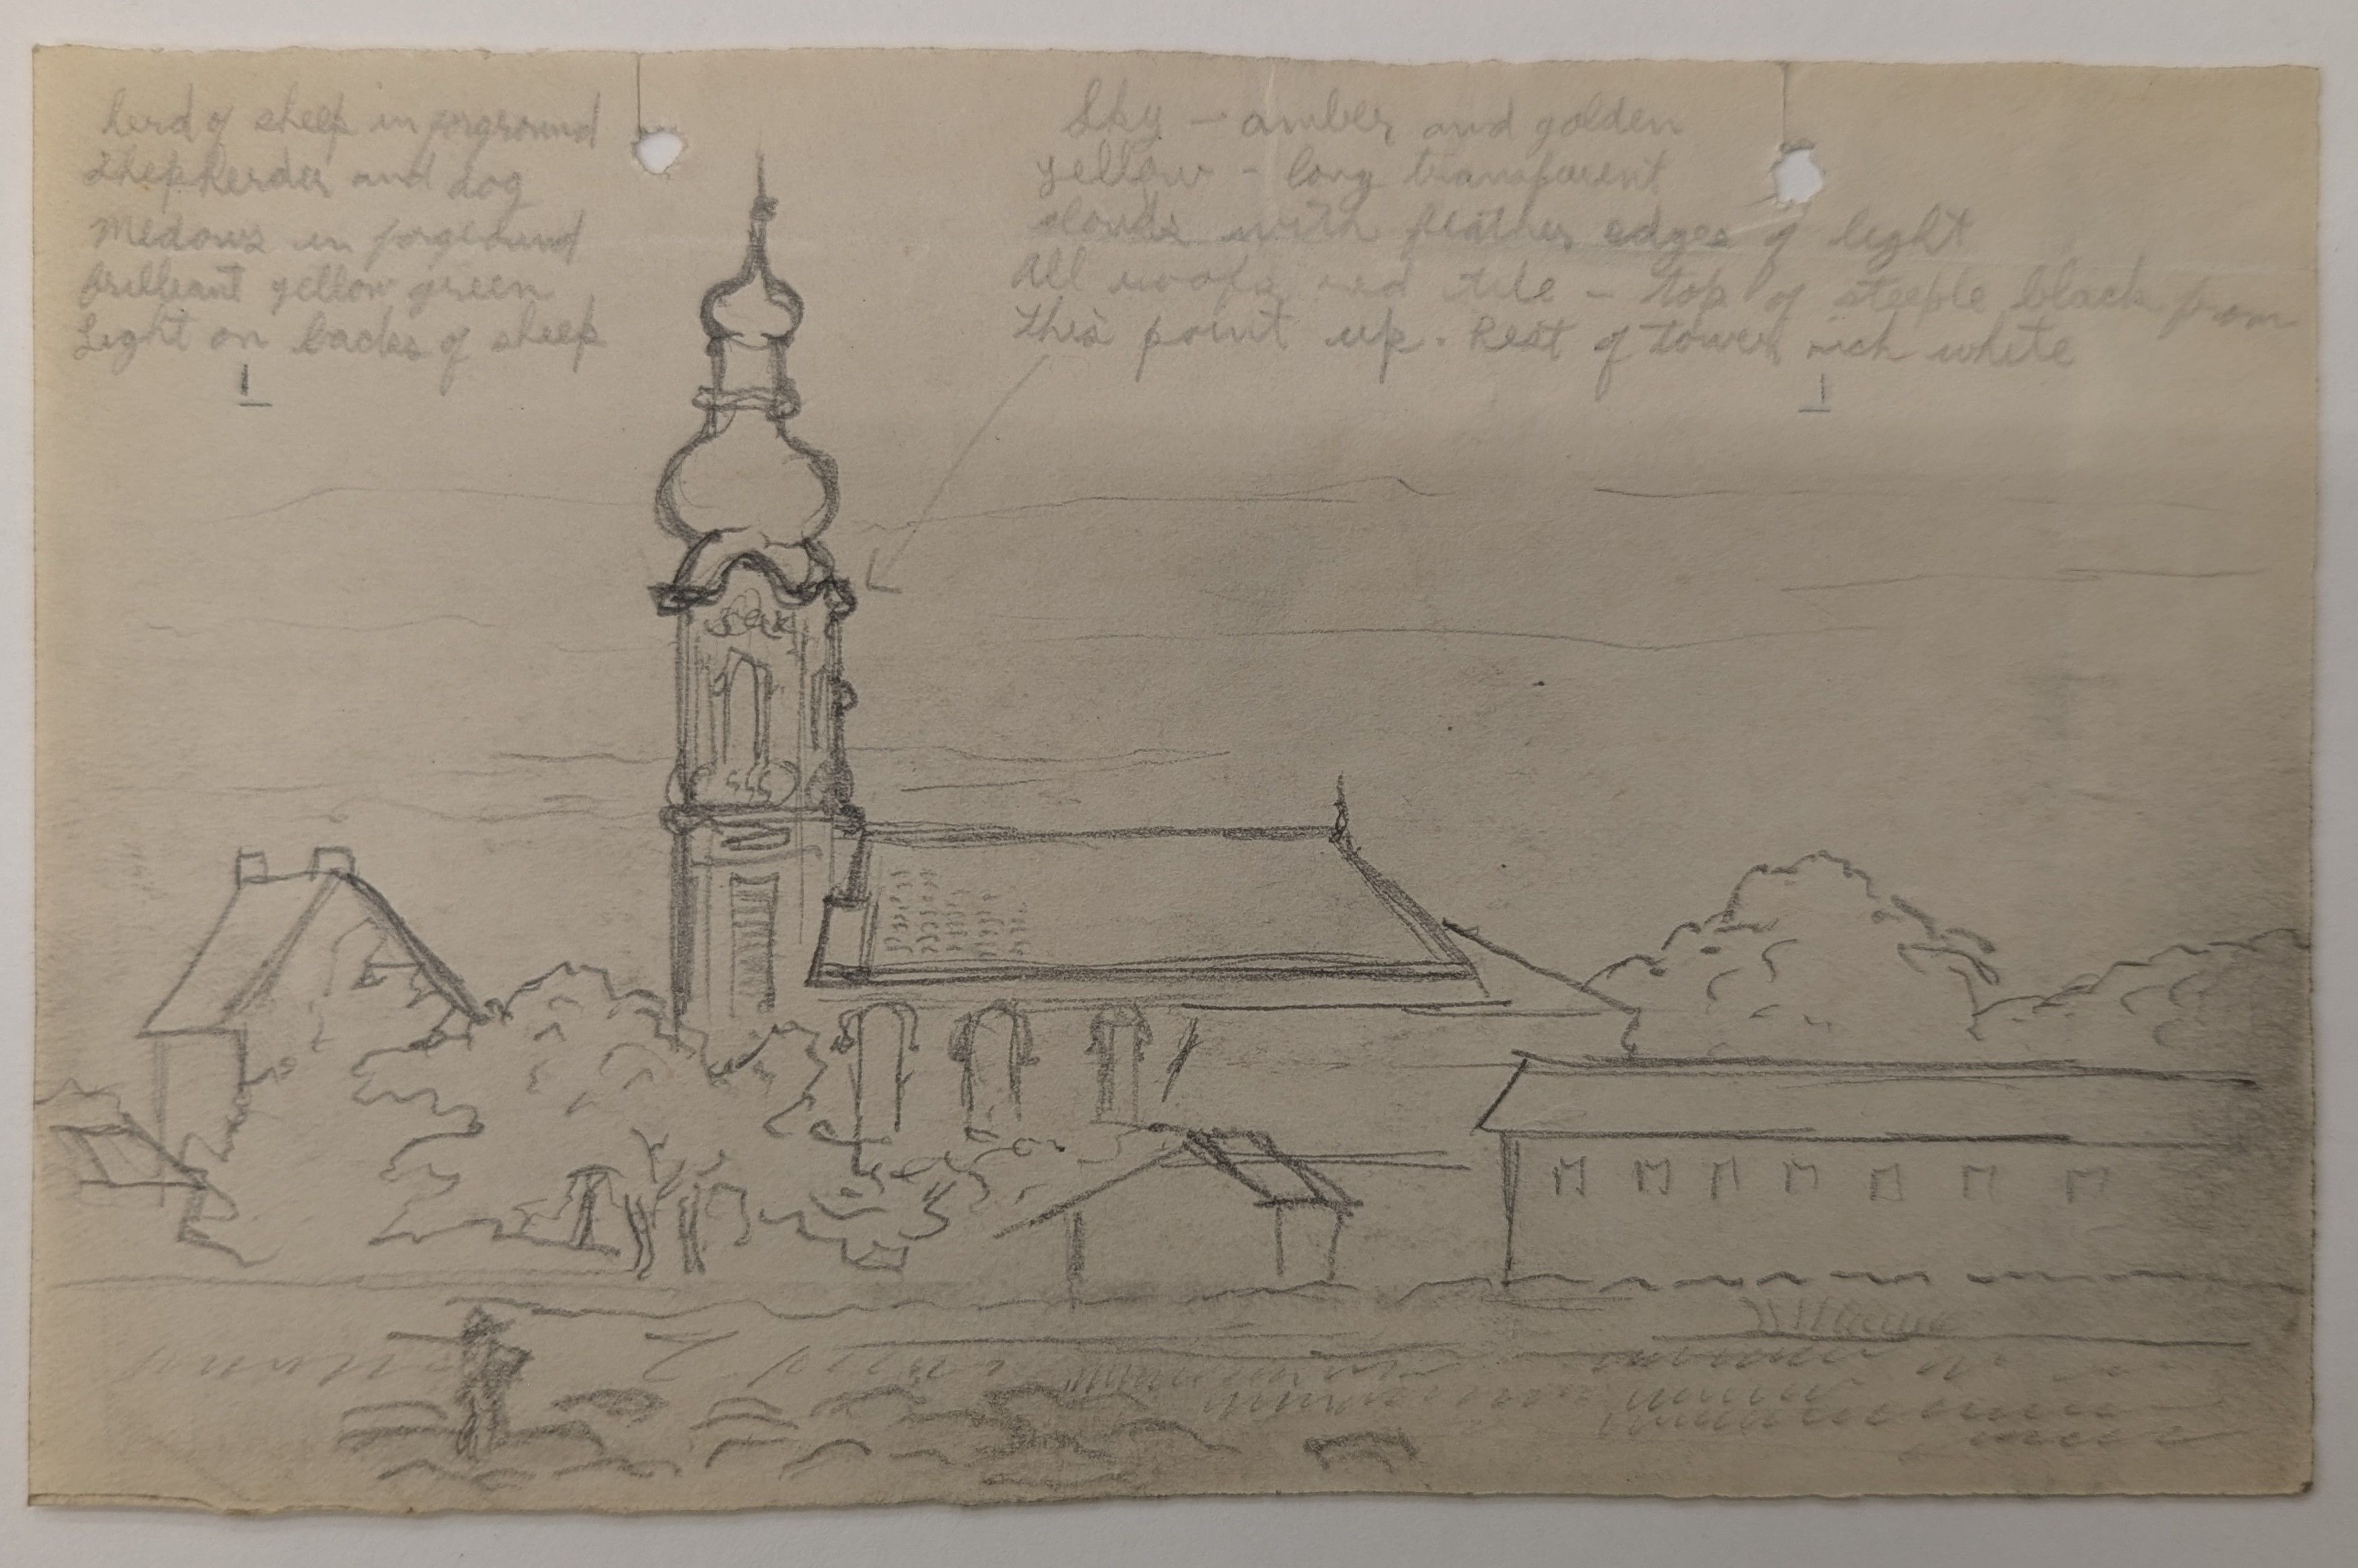 herd of sheep in forground
Shepherder and dog
Medows in forground
brilliant yellow green
Light on backs of sheep
Sky - amber and golden
yellow - long transparent
clouds with feather edges of light
All roofs red tile - top of steeple black from
this point up. Rest of tower rich white